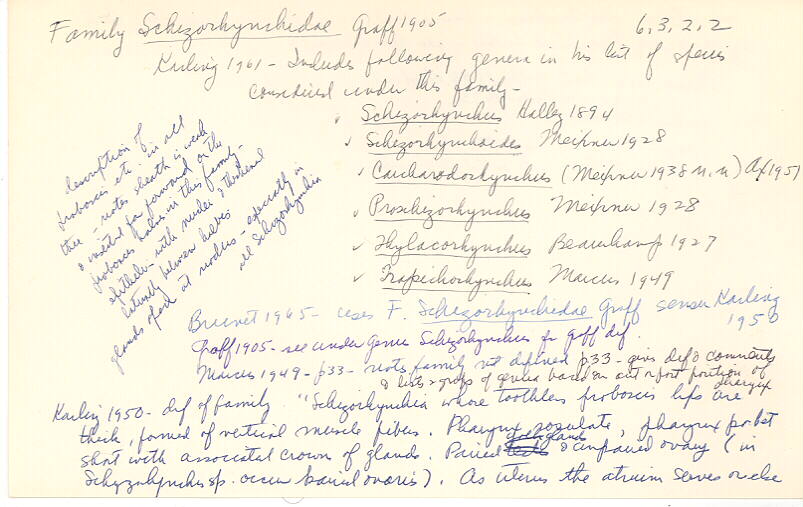 Family Schizorhynchidae Graff 1905 6, 3, 2, 2
Karling 1961 - Includes following genera in his list of species
considered under this family -
✓ Schizorhynchus Hallez 1894
✓ Schizorhynchoides Meixner 1928
✓ Carcharodorhynchus (Meixner 1938 n.n) Ax 1951
✓ Proschizorhynchus Meixner 1928
✓ Thylacorhynchus Beauchamp 1927
✓ Trapichorhynchus Marcus 1949
description of
proboscis etc. in all
these - notes sheath is weak
& inserted far forward on the
proboscis halves in this family -
epithelium with nuclei
laterally between halves
glands open at nodus - especially in
all Schizorhynchia
Brunet 1965 - uses F. Schizorhynchidae Graff sensu Karling
1950
Graff 1905 - see under Genus Schizorhynchus for Graff def.
Marcus 1949 - p33 - notes family not defined p33 - gives def & comments
& lists 2 groups of genera based on ant or post position of
pharynx
Karling 1950 - def of family "Schizorhynchia whose toothless proboscis lips are
thick, formed of vertical muscle fibers. Pharynx rosulate, pharynx pocket
short with associated crown of glands. Paired & unpaired ovary (in
Schizorhynchus sp. occur paired ovaries). As uterus the atrium serves or else